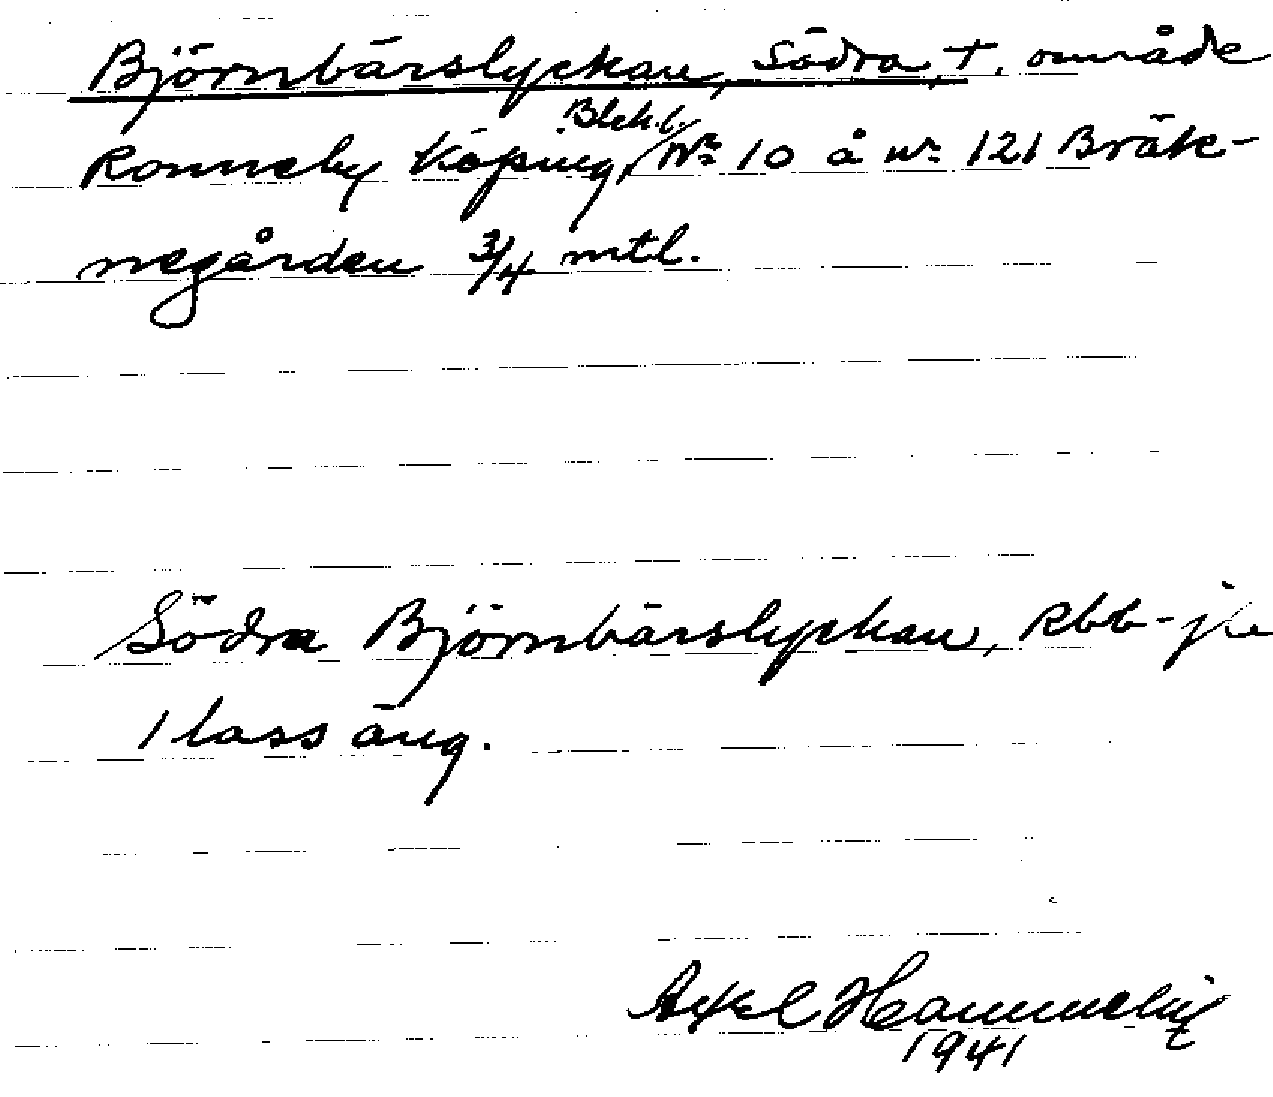 Björnbärslyckan, Södra, †, område
Blek.l.
Ronneby Köping, Nr 10 å nr 121 Bräk-
negården 3/4 mtl.
Södra Björnbärslyckan, Rbb-jke
1 lass äng.
Axel
1941